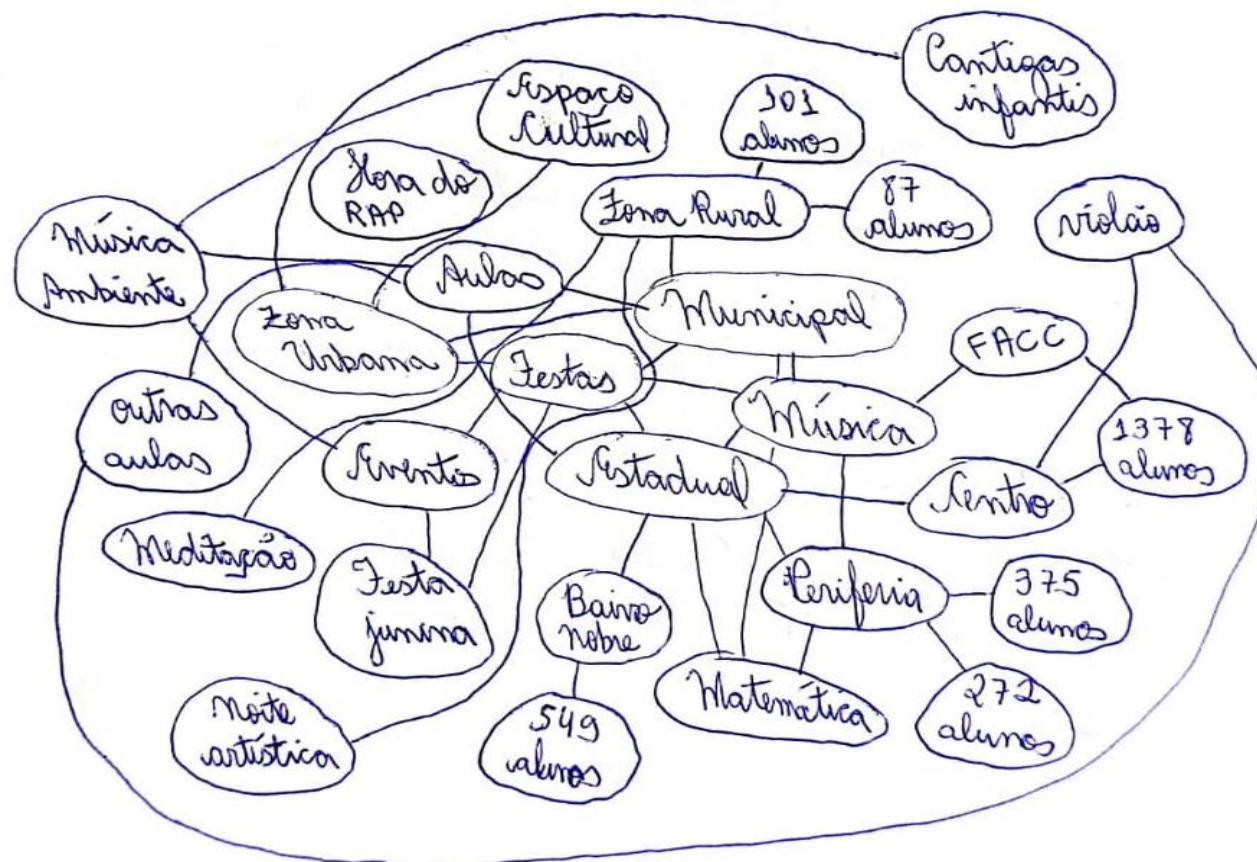 Cantigas
infantis
Espaço
Cultural
101
alunos
Hora do
RAP
Zona Rural
87
alunos
violão
Música
Ambiente
Aulas
Municipal
Zona
Urbana
Festas
FACC
outras
aulas
Música
1378
alunos
Eventos
Estadual
Centro
Meditação
Festa
junina
Bairro
nobre
Periferia
375
alunos
Matemática
272
alunos
Noite
artística
549
alunos